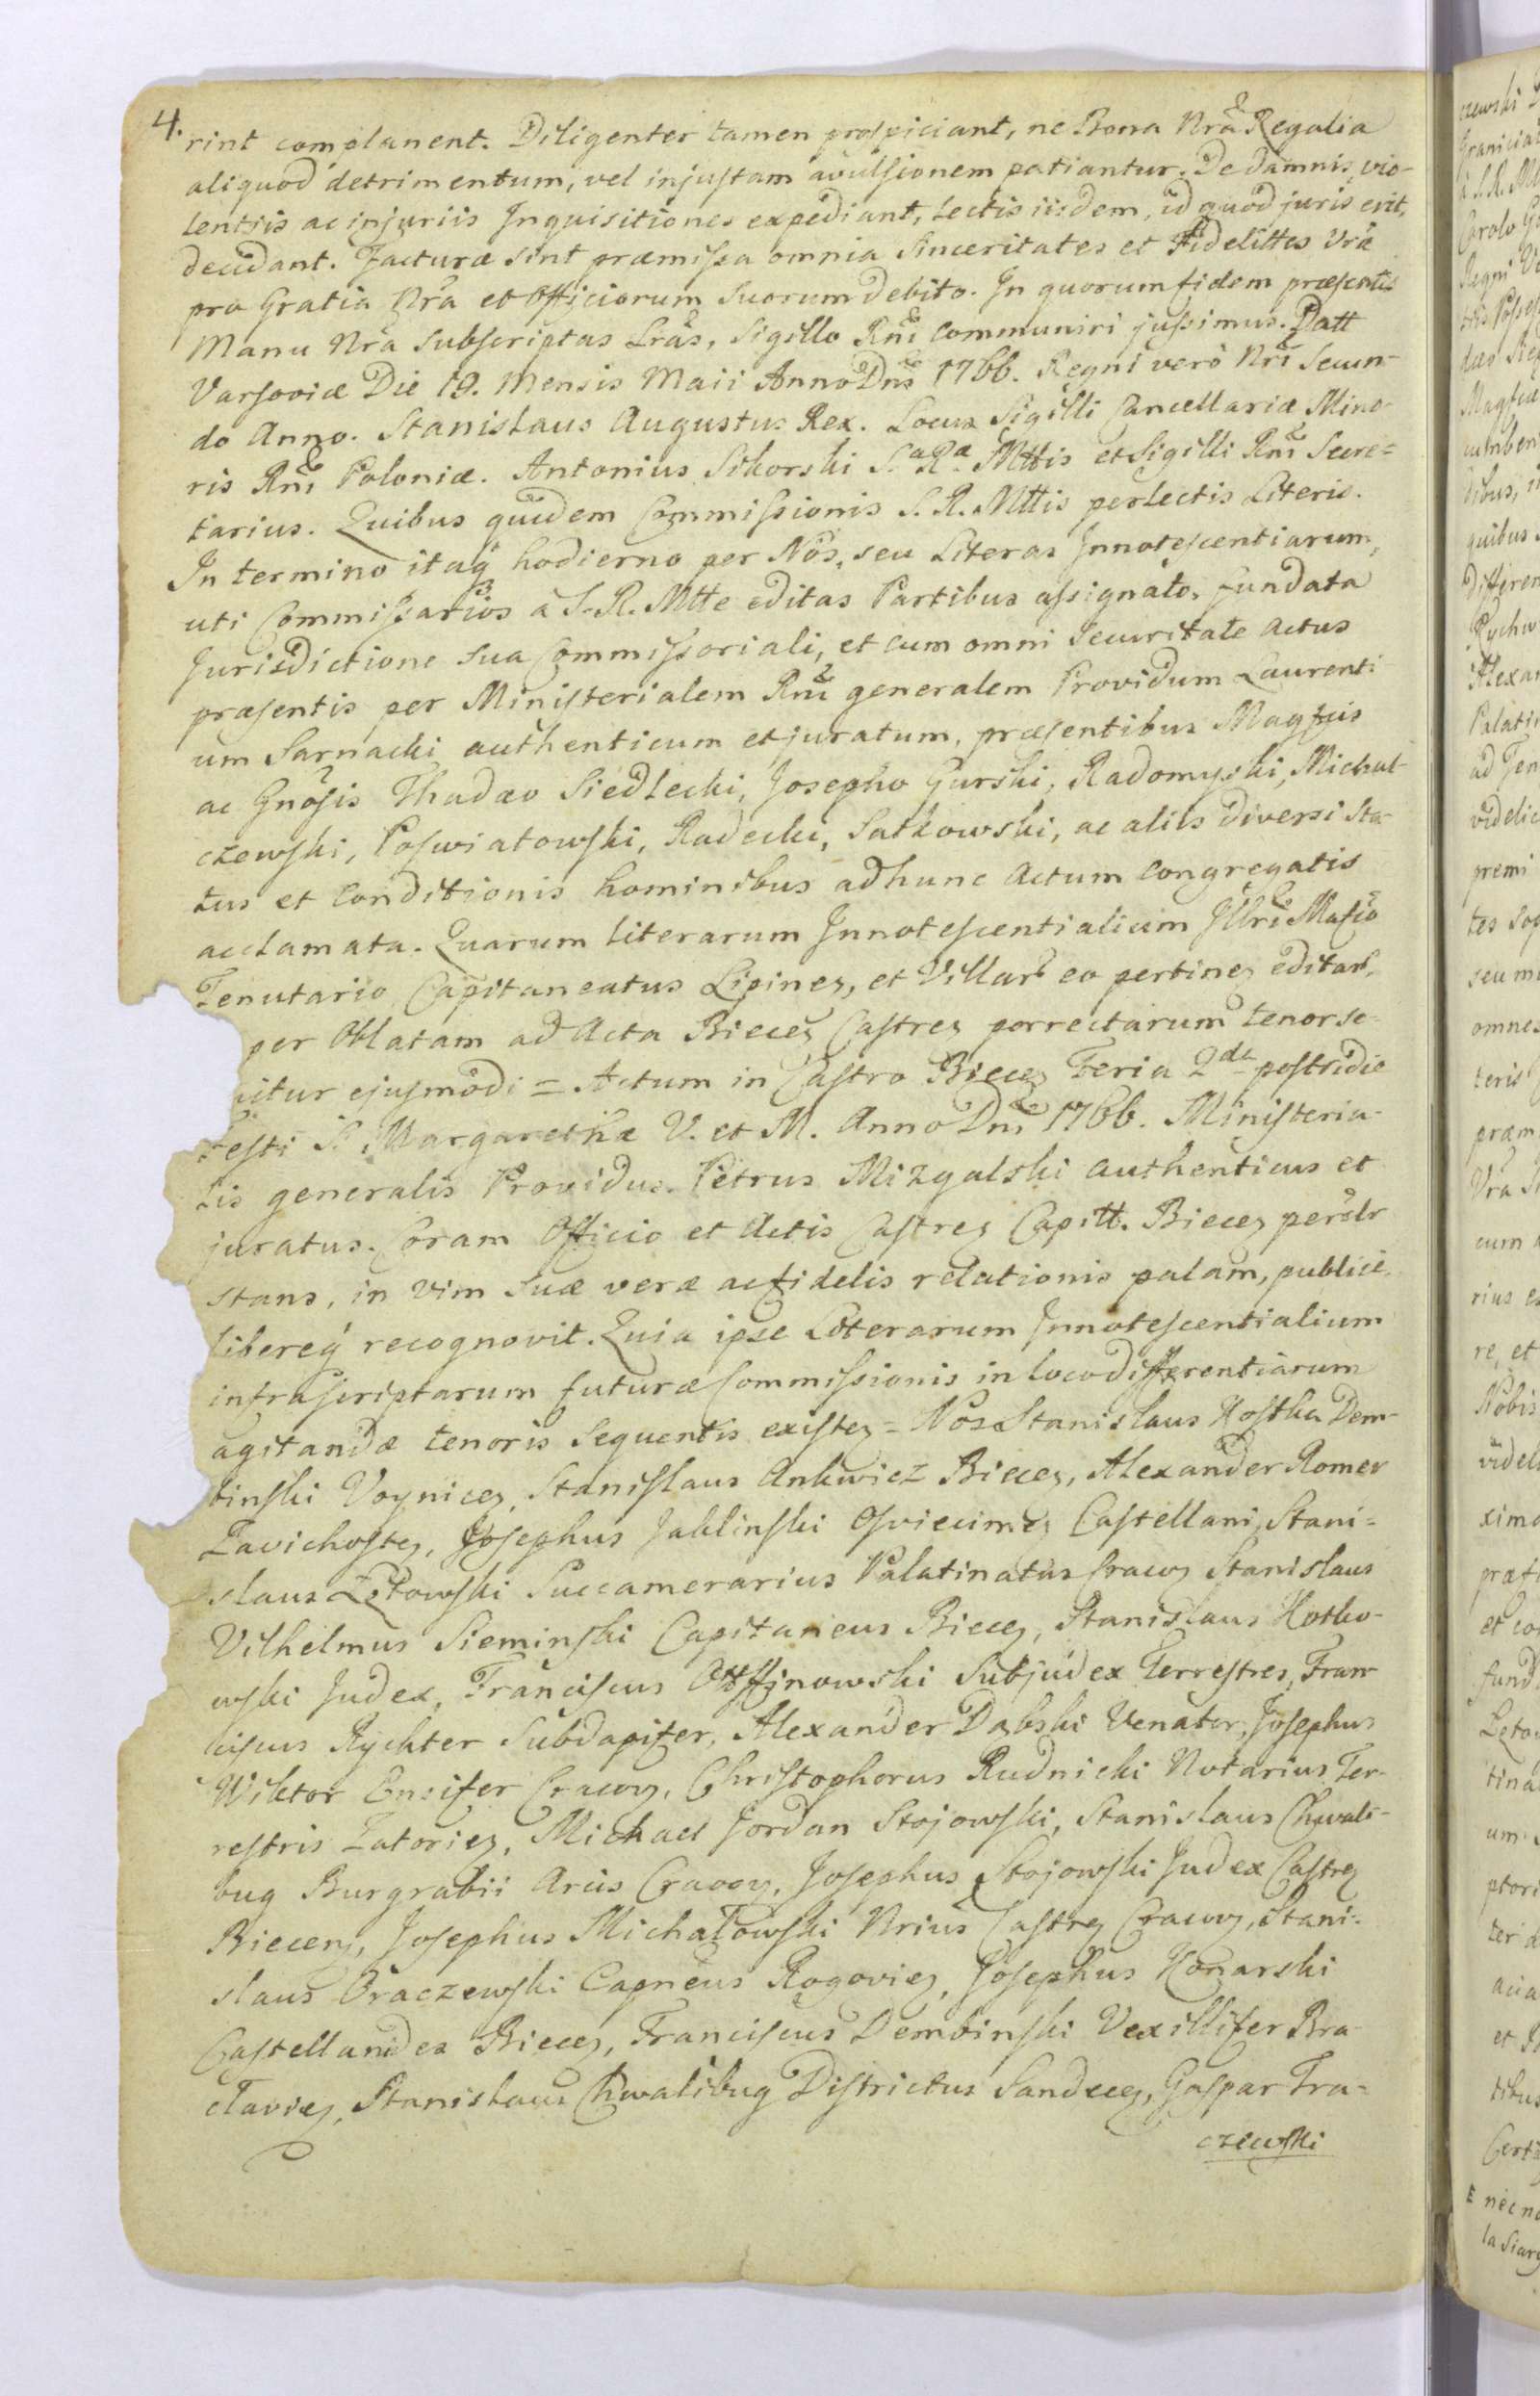 4.
rint complanent. Diligenter tamen prospiciant, ne Bona Nrã Regalia
aliquod detrimentum, vel injustam avulsionem patiantur. De Damnis, vio-
lentiis ac injuriis Inquisitiones expediant, Lectis iisdem, id quod juris erit,
decidant. Facturæ sint præmissa omnia Sinceritates et Fidelittes Vrã
pro Gratia Nrã et Officiorum Suorum Debito. In quorum fidem præsentes
Manu Nrã Subscriptas Lrãs, Sigillo Rnĩ communiri jussimus. Datt
Varsoviæ Die 19. Mensis Maii Anno Dnĩ 1766. Regni verò Nrĩ Secun-
do Anno. Stanislaus Augustus Rex. Locus Sigilli Cancellariæ Mino-
ris Rnĩ Poloniæ. Antonius Sikorski S.ª R.ª Mttis et Sigilli Rnĩ Secre=
tarius. Quibus quidem Commissionis S. R. Mttis perlectis Literis.
In termino itaq̃ hodierno per Nos, seu Literas Innotescentiarum,
uti Commissarios à S. R. Mtte editas Partibus assignato, fundata
Jurisdictione sua Commissoriali, et cum omni Securitate actus
præsentis per Ministerialem Rnĩ generalem Providum Laurenti-
um Sarnacki authenticum et juratum, præsentibus Magfcis
ac Gnõsis Thadæo Siedlecki, Josepho Gurski, Radomyski, Michal-
czewski, Poswiatowski, Radecki, Satkowski, ac aliis Diversi Sta-
tus et Conditionis hominibus ad hunc actum congregatis
acclamata. Quarum literarum Innotescentialium Illrĩ Mafcõ
Tenutario Capitaneatus Lipineŋ, et Villarũ eo pertineŋ editarũ,
per Oblatam ad Acta Bieceŋ Castreŋ porrectarum tenor se-
uitur ejusmodi = Actum in Castro Bieceŋ Feria 2da postridie
Festi S. Margarethæ V. et M. Anno Dnĩ 1766. Ministeria-
lis generalis Providus Petrus Mizgalski authenticus et
juratus. Coram Officio et Actis Castreŋ Capitt. Bieceŋ persлr
stans, in vim suæ veræ ac fidelis relationis palam, publicè
libereq̃ recognovit. Quia ipse Literarum Innotescentialium
infrascriptarum futuræ Commissionis in loco differentiarum
agitandæ tenoris sequentis existeŋ = Nos Stanislaus Kostka Dem-
binski Voyniceŋ, Stanislaus Ankwicz Bieceŋ, Alexander Romer
Zavichosteŋ, Josephus Jaklinski Osviecimeŋ Castellani, Stani=
slaus Łętowski Succamerarius Palatinatus Cracoŋ Stanislaus
Vilhelmus Sieminski Capitaneus Bieceŋ, Stanislaus Kotko-
wski Judex, Franciscus Otffinowski Subjudex Terrestres, Fran-
ciscus Rychter Subdapifer, Alexander Dąbski Venator, Josephus
Wiktor Ensifer Cracoŋ, Christophorus Rudnicki Notarius Ter-
restris Zatorieŋ, Michael Jordan Stojowski, Stanislaus Chwali-
bug Burgrabii Arcis Cracoŋ, Josephus Stojowski Judex Castreŋ
Bieceŋ, Josephus Michałowski Nrius Castreŋ Cracoŋ, Stani-
slaus Oraczewski Capneus Rogovieŋ, Josephus Konarski
Castellanides Bieceŋ, Franciscus Dembinski Vexillifer Bra-
clavieŋ, Stanislaus Chwalibug Districtus Sandeceŋ, Gaspar Tra=
czewski